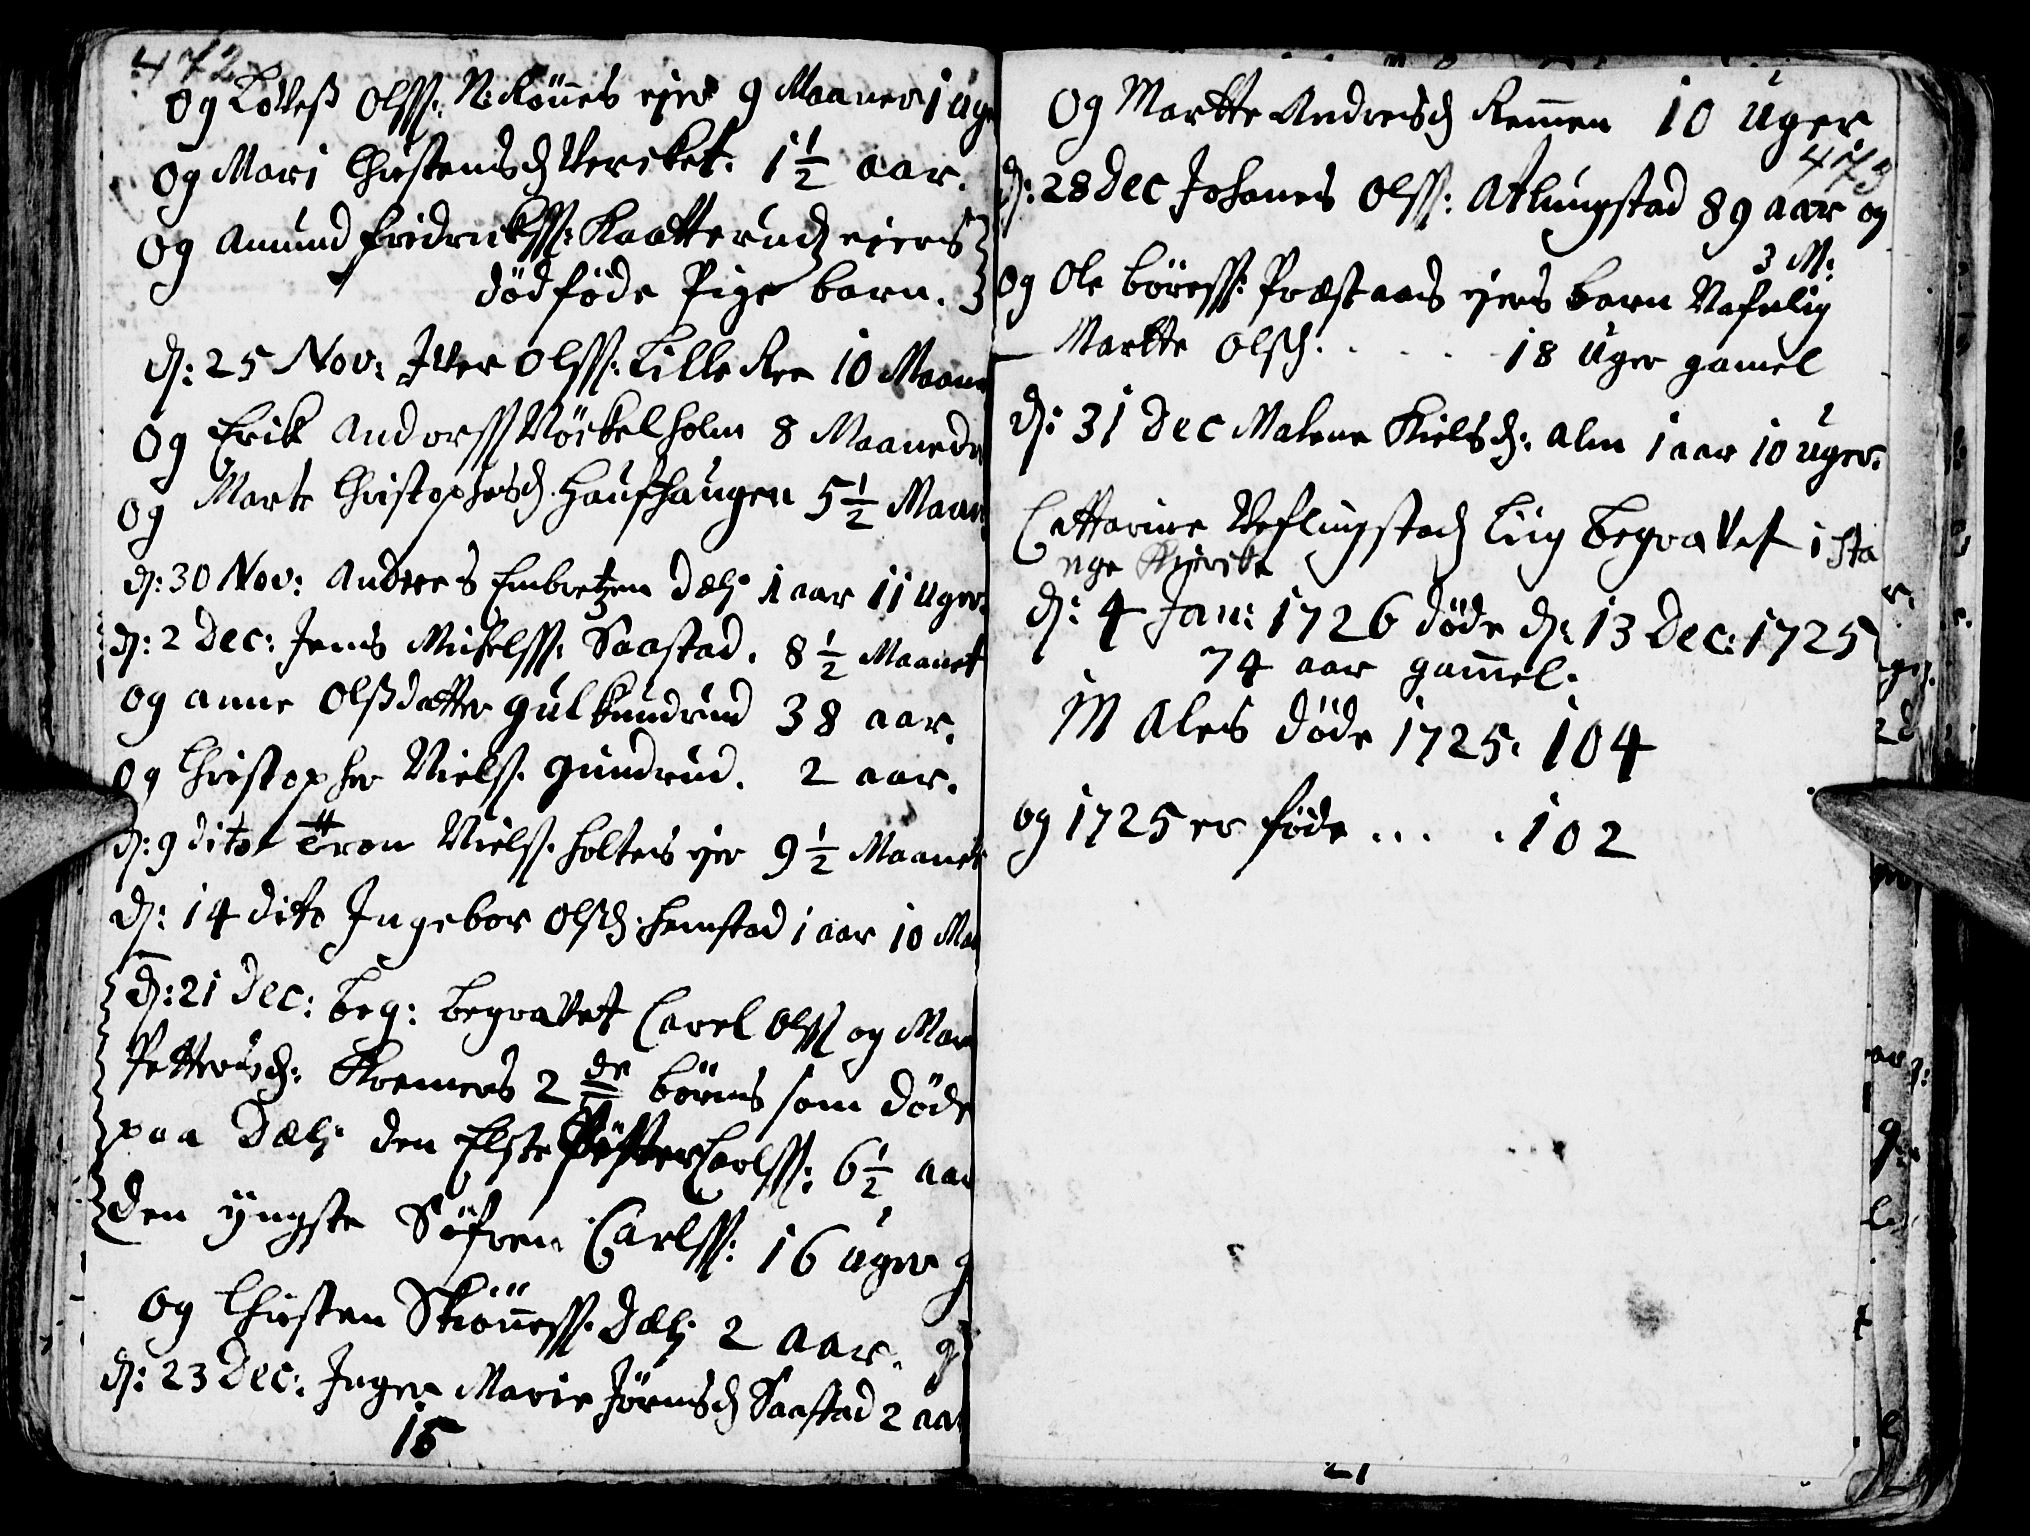 472
Og Lovess Olss: N: Rönnes ejer 9 Maaner 1 Uge
Og Mari Christensd Verket. 1 1/2 aar.
Og Amund Fridrickss: Kaatterud ejers
dödföde Pige barn.
D: 25 Nov: Iver Olss: Lille Ree 10 Maane
Og Erik Anderss Nöckelholm 8 Maanede
Og Marte Christophersd. Haufhaugen 5 1/2 Maan
D: 30 Nov: Anders Embretzen Dæli 1 aar 11 Uger.
D: 2 Dec: Jens Mikelss: Saastad. 8 1/2 Maanet
Og Anne Olssdatter Gulkundrud 38 aar.
Og Christopher Nielss. Gundrud. 2 aar.
D: 9 dito Tron Nielss. Holtens ejer 9 1/2 Maanet
D: 14 dito Ingebor Olsd. Hemstad 1 aar 10 Maa
D: 21 Dec: beg: begravet Carel Olss og Mar
Pettersd: Kremers 2 de börns som döde
paa Dæli den Elste Petter Carlss: 6 1/2 aar
Den yngste Söfren Carlss: 16 Uger g
Og Christen Skönness. Dæli 2 aar. g
D: 23 Dec: Inger Marie Jörensd Saastad 2 aar
15
Og Martte Andersd Remmen 10 Uger
473
D: 28 Dec Johanes Olss: Atlungstad 89 aar og
3 M:
Og Ole Böress: Præstaas ejers barn Nafnlig
Martte Olsd. . . . . 18 Uger gamel
D: 31 Dec Malene Kielsd: Alm 1 aar 10 Uger.
Cattarine Veflingstad Liig begravet i Sta
nge Kjerke
D: 4 Jan: 1726 döde D: 13 Dec: 1725
74 aar gammel.
In Ales döde 1725. 104
og 1725 er föde . . . . 102